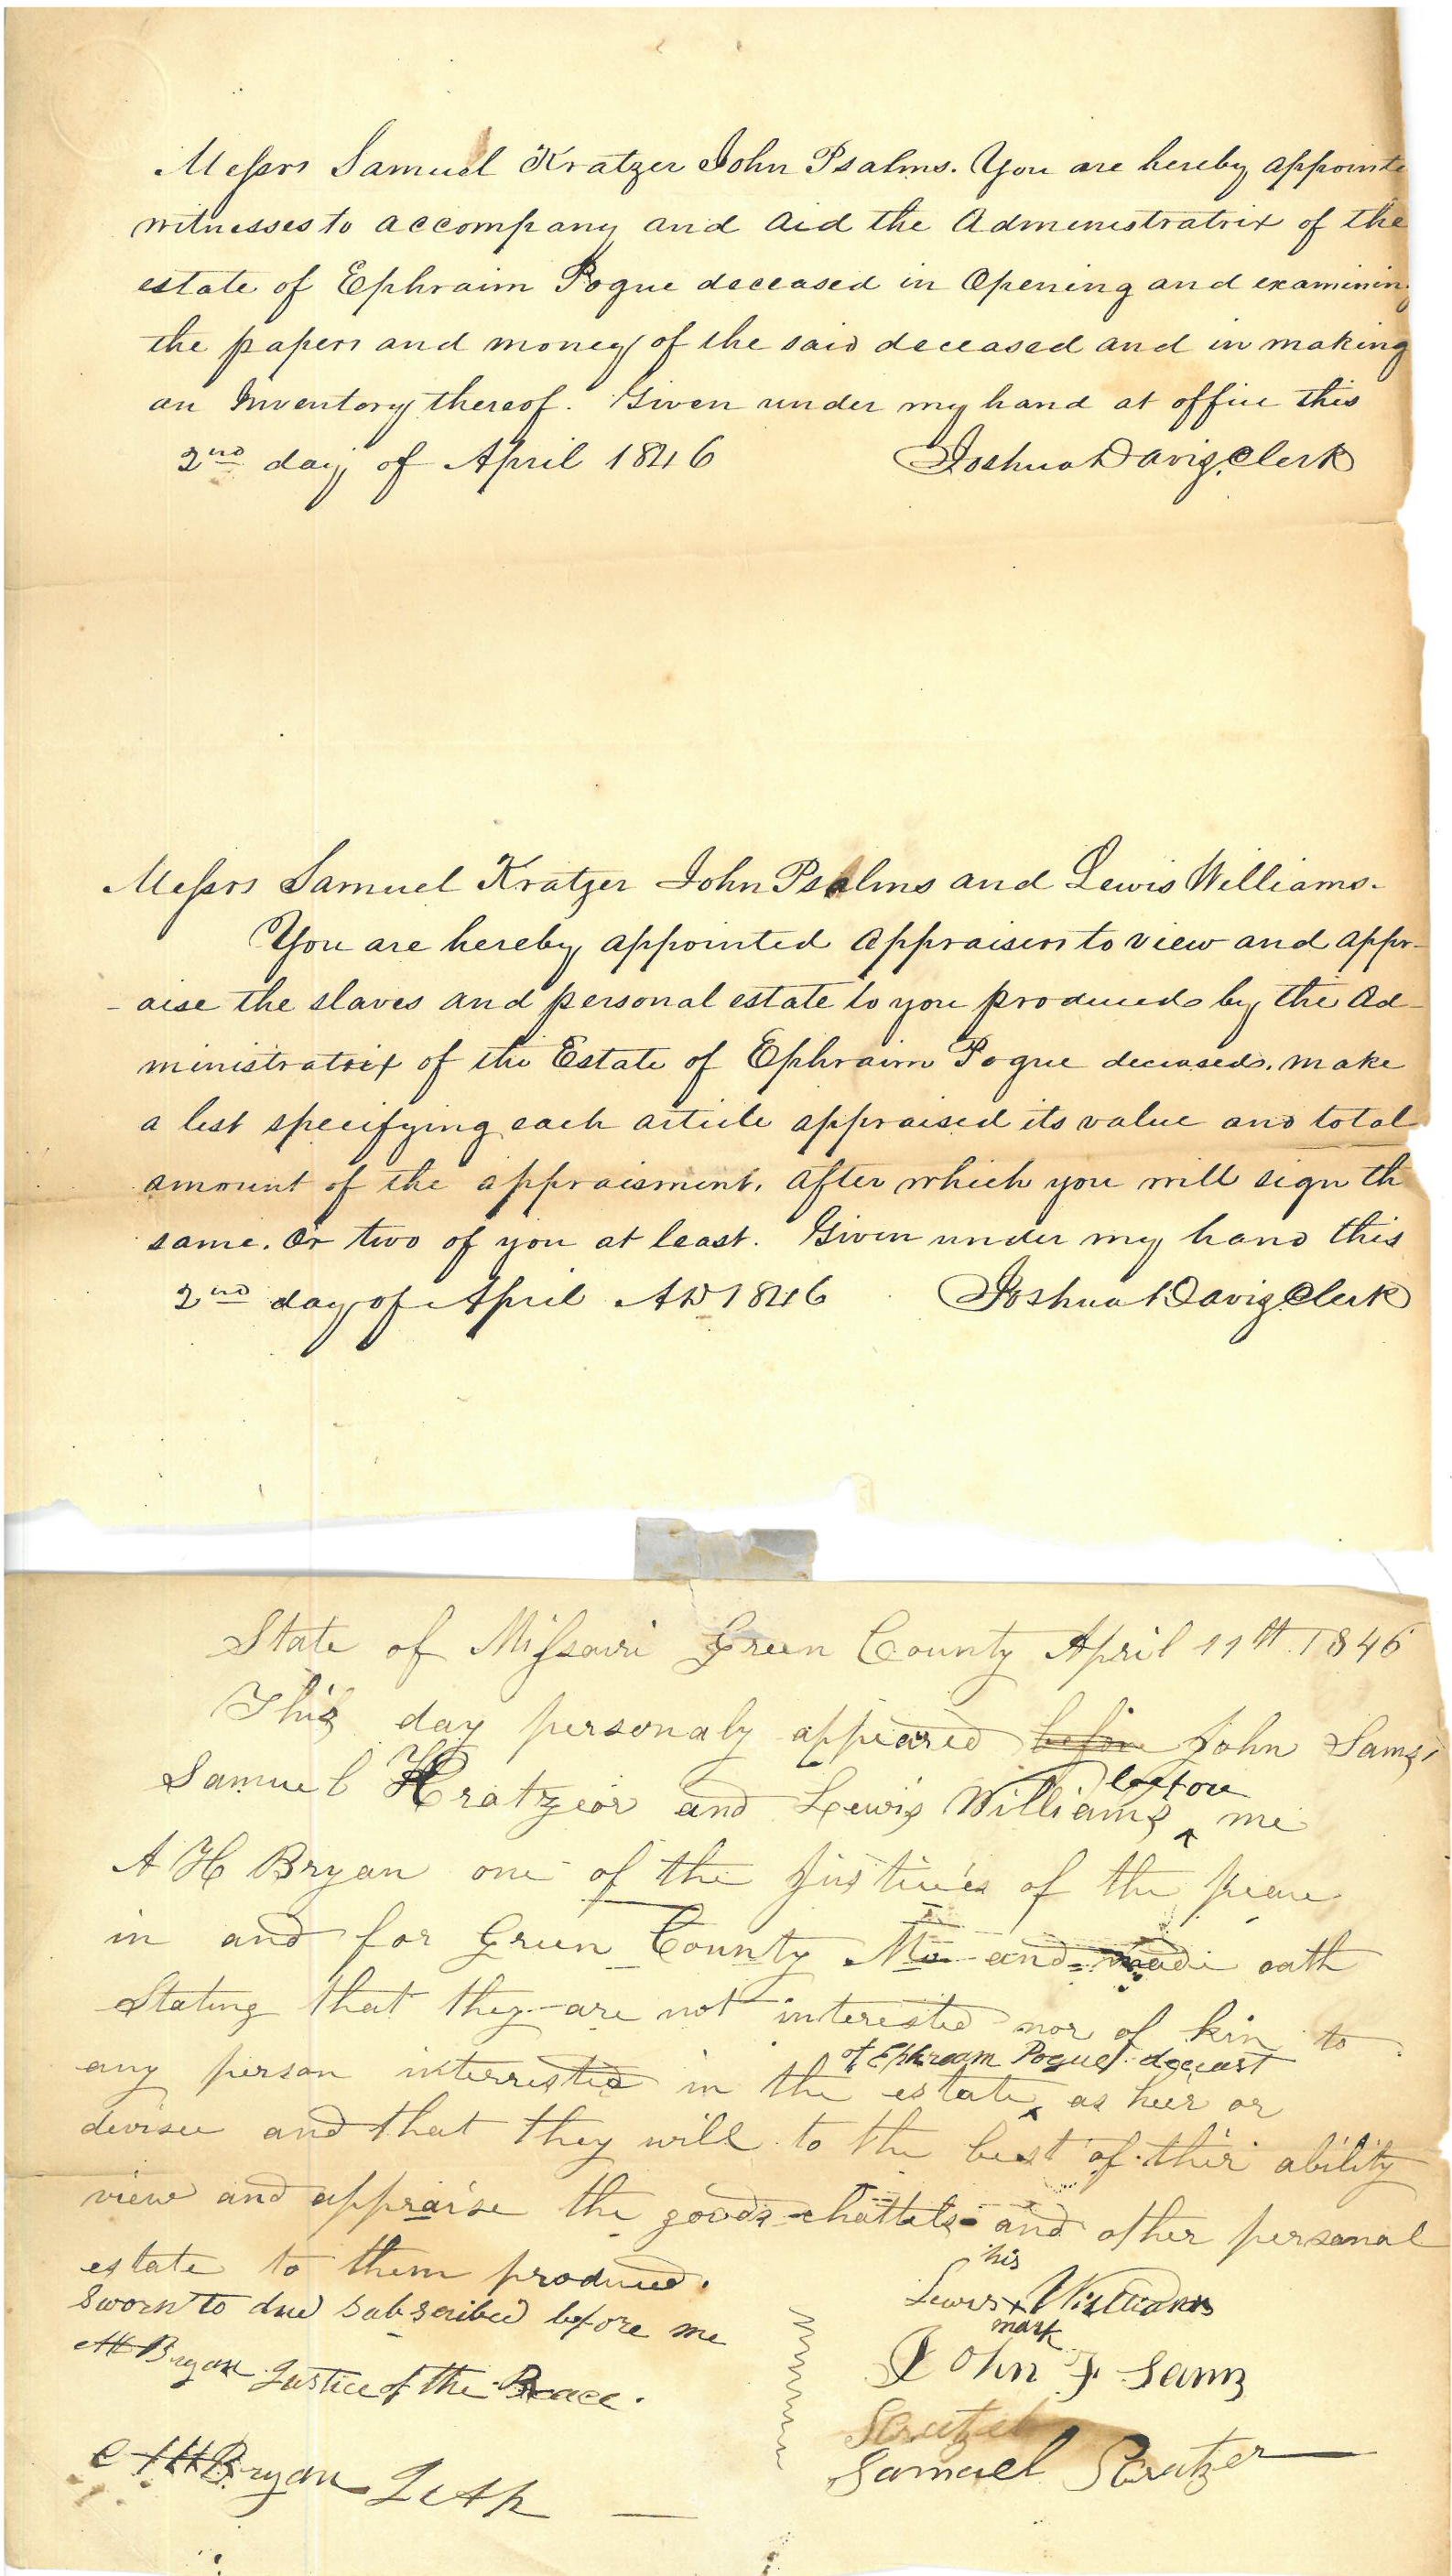 Messrs Samuel Kratzer John Psalms. You are hereby appointe
witnesses to accompany and aid the Administratrix of the
estate of Ephraim Pogue deceased in Opening and examinin
the papers and money of the said deceased and in making
an Inventory thereof. Given under my hand at office this
2nd day of April 1846 Joshua Davis, Clerk
Messrs Samuel Kratzer John Psalms and Lewis Williams.
You are hereby appointed appraisers to view and appr-
-aise the slaves and personal estate to you produced by the Ad-
ministratrix of the Estate of Ephraim Pogue deceased. make
a list specifying each article appraised its value and total
amount of the appraisment. after which you will sign th
same. Or two of you at least. Given under my hand this
2nd day of April AD 1846 Joshua Davis Clerk
State of Missouri Green County April 11th 1846
This day personaly appeared before John Sams
Samuel Kratzeor and Lewis Williams before me
A H Bryan one of the Justices of the peace
in and for Green County Mo and made oath
Stating that they are not interested nor of kin to
any person interrested in the estate of Ephream Pogue deceast as heer or
devisee and that they will to the best of their ability
view and appraise the goods chattels and other personal
estate to them produced.
Sworn to and subscribed before me
AH Bryan Justice of the Peace.
AH Bryan
his
Lewis x Williams
mark
John F Sams
Samuel Kratzer